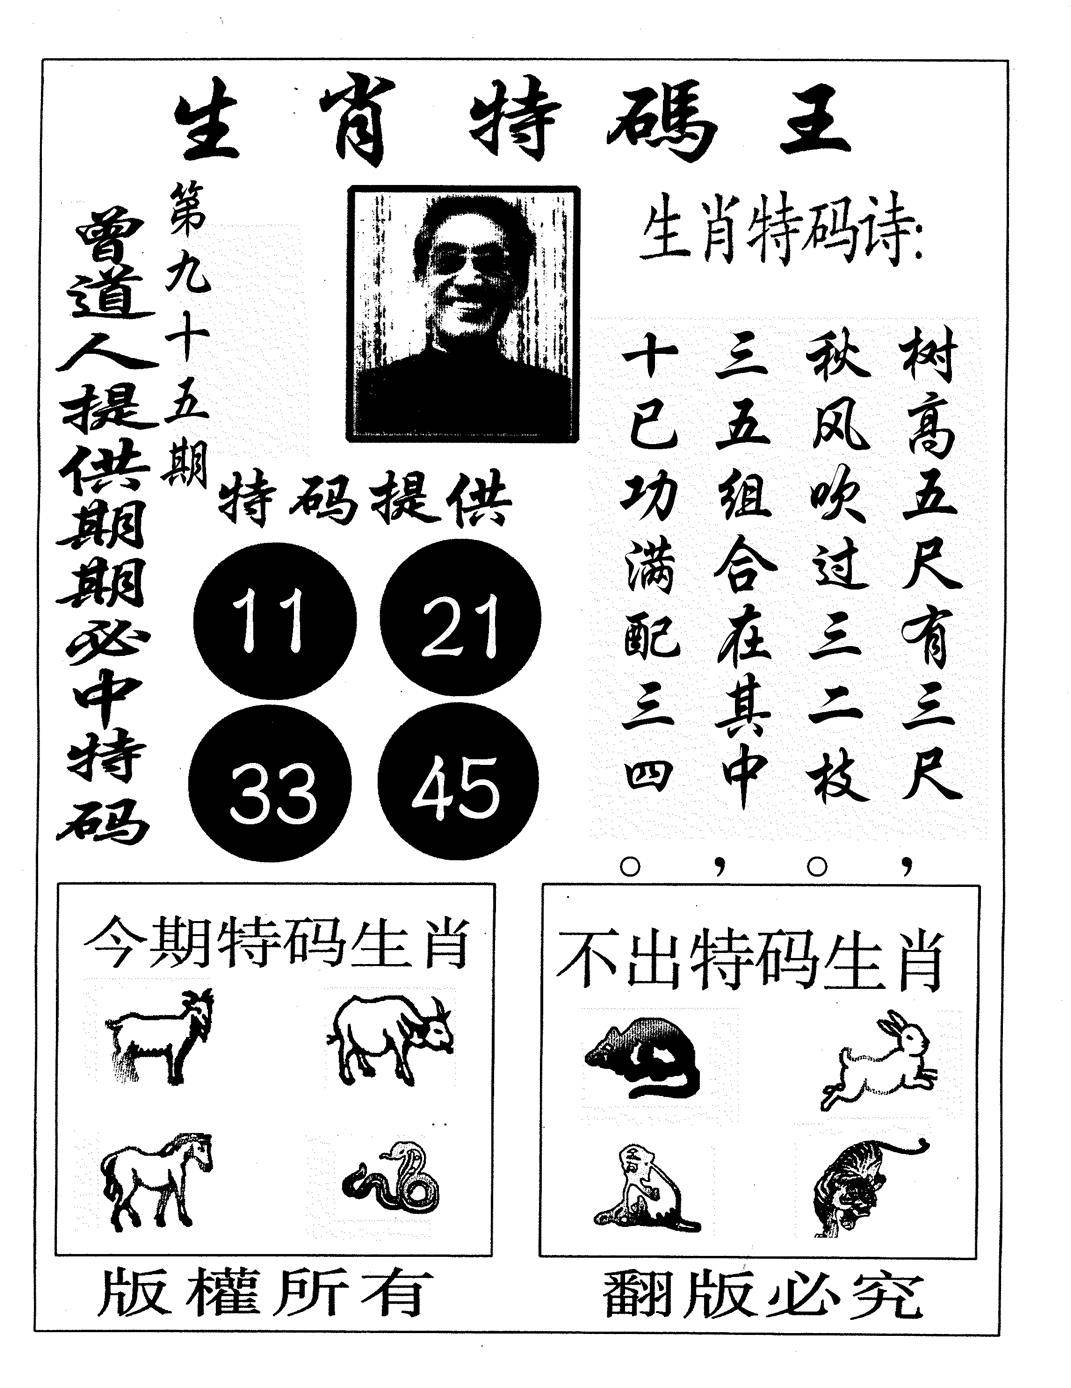 生肖特碼王
第九十五期
曾道人提供期期必中特码
生肖特码诗:
树高五尺有三尺，
秋风吹过三二枝。
三五组合在其中，
十已功满配三四。
特码提供
11 21
33 45
今期特码生肖
不出特码生肖
版權所有
翻版必究